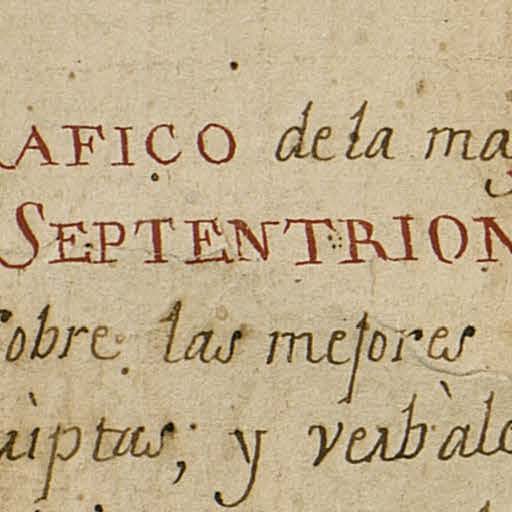 RAFICO de la ma
SEPTENTRION
sobre las mejores
aiptas; y verbàle